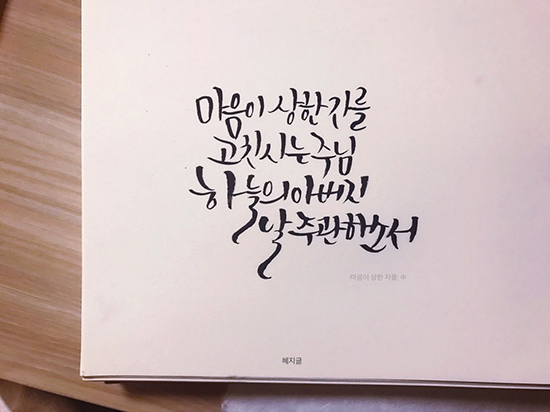 마음이 상한 자를
고치시는 주님
하늘의 아버지
날 주관하소서
마음이 상한 자를 中
혜지글